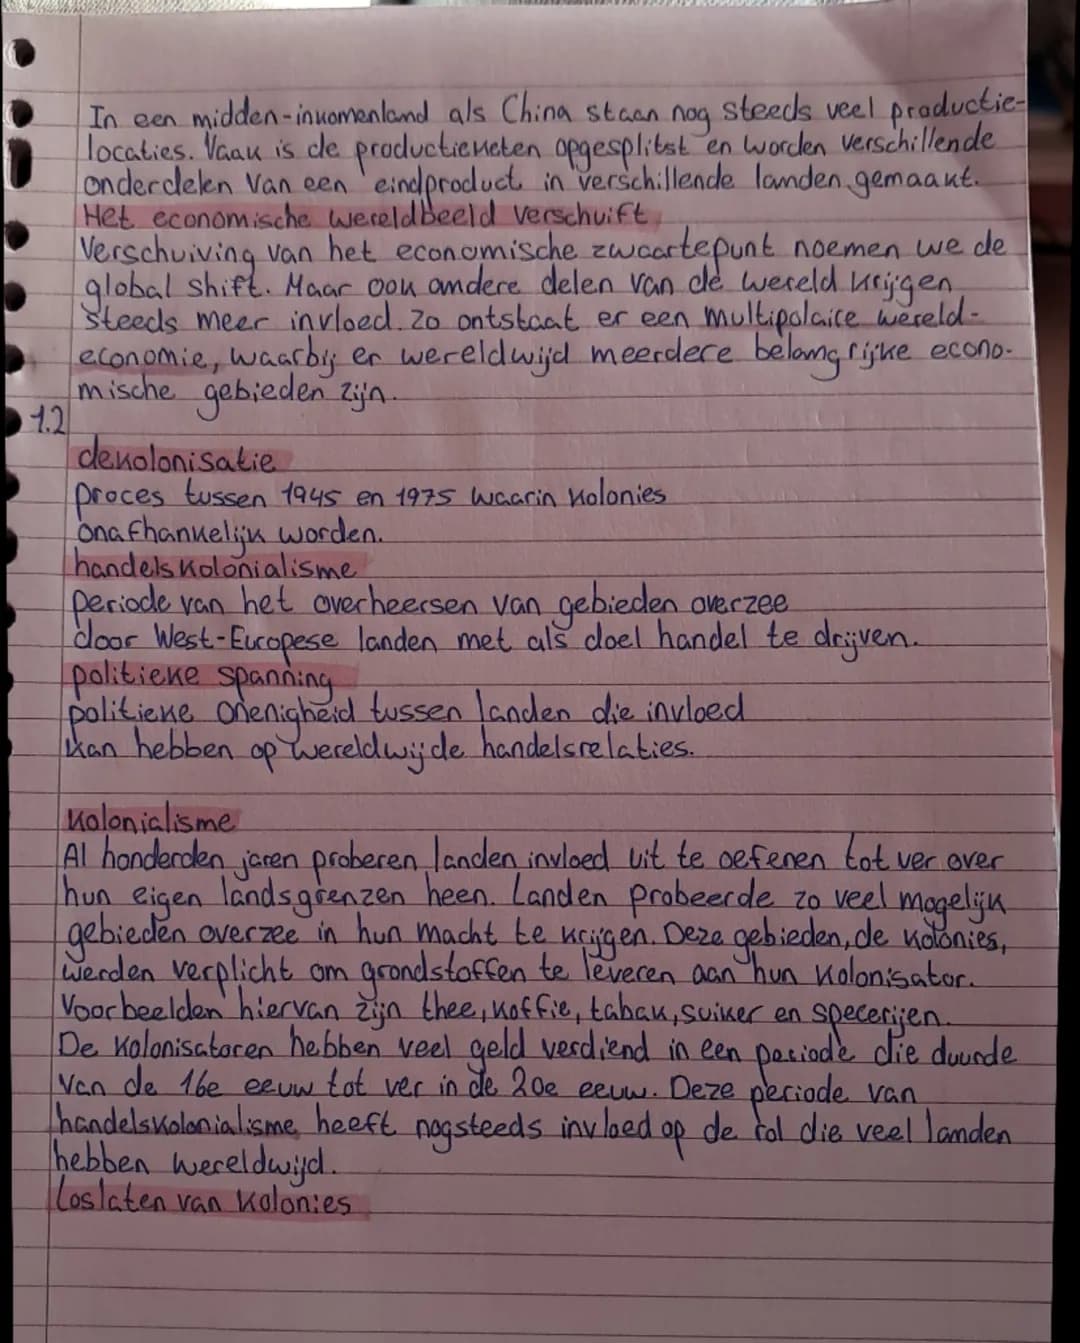 In een midden-inkomenland als China staan nog steeds veel productie-
locaties. Vaak is de productieketen opgesplitst en worden verschillende
onderdelen van een eindproduct in verschillende landen gemaakt.
Het economische wereldbeeld verschuift
Verschuiving van het economische zwaartepunt noemen we de
global shift. Maar ook andere delen van de wereld krijgen
steeds meer invloed. Zo ontstaat er een multipolaire wereld-
economie, waarbij er wereldwijd meerdere belangrijke econo-
mische gebieden zijn.
1.2
dekolonisatie
proces tussen 1945 en 1975 waarin kolonies
onafhankelijk worden.
handelskolonialisme
periode van het overheersen van gebieden overzee
door West-Europese landen met als doel handel te drijven.
politieke spanning
politieke onenigheid tussen landen die invloed
kan hebben op wereldwijde handelsrelaties.
kolonialisme
Al honderden jaren proberen landen invloed uit te oefenen tot ver over
hun eigen landsgrenzen heen. Landen probeerde zo veel mogelijk
gebieden overzee in hun macht te krijgen. Deze gebieden, de kolonies,
werden verplicht om grondstoffen te leveren aan hun kolonisator.
Voorbeelden hiervan zijn thee, koffie, tabak, suiker en specerijen.
De kolonisatoren hebben veel geld verdiend in een periode die duurde
van de 16e eeuw tot ver in de 20e eeuw. Deze periode van
handelskolonialisme heeft nogsteeds invloed op de rol die veel landen
hebben wereldwijd.
Loslaten van kolonies